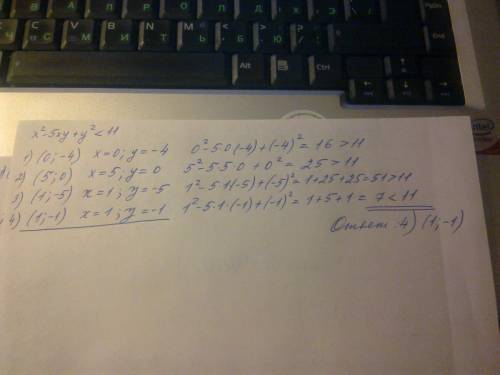 Alt
Ctrl
PgDn
End
x²-5xy+y²<11
1) (0;-4) x=0; y=-4 0²-5·0·(-4)+(-4)²=16>11
2) (5;0) x=5; y=0 5²-5·5·0+0²=25>11
3) (1;-5) x=1; y=-5 1²-5·1(-5)+(-5)²=1+25+25=51>11
4) (1;-1) x=1; y=-1 1²-5·1·(-1)+(-1)²=1+5+1=7<11
Ответ: 4) (1;-1)